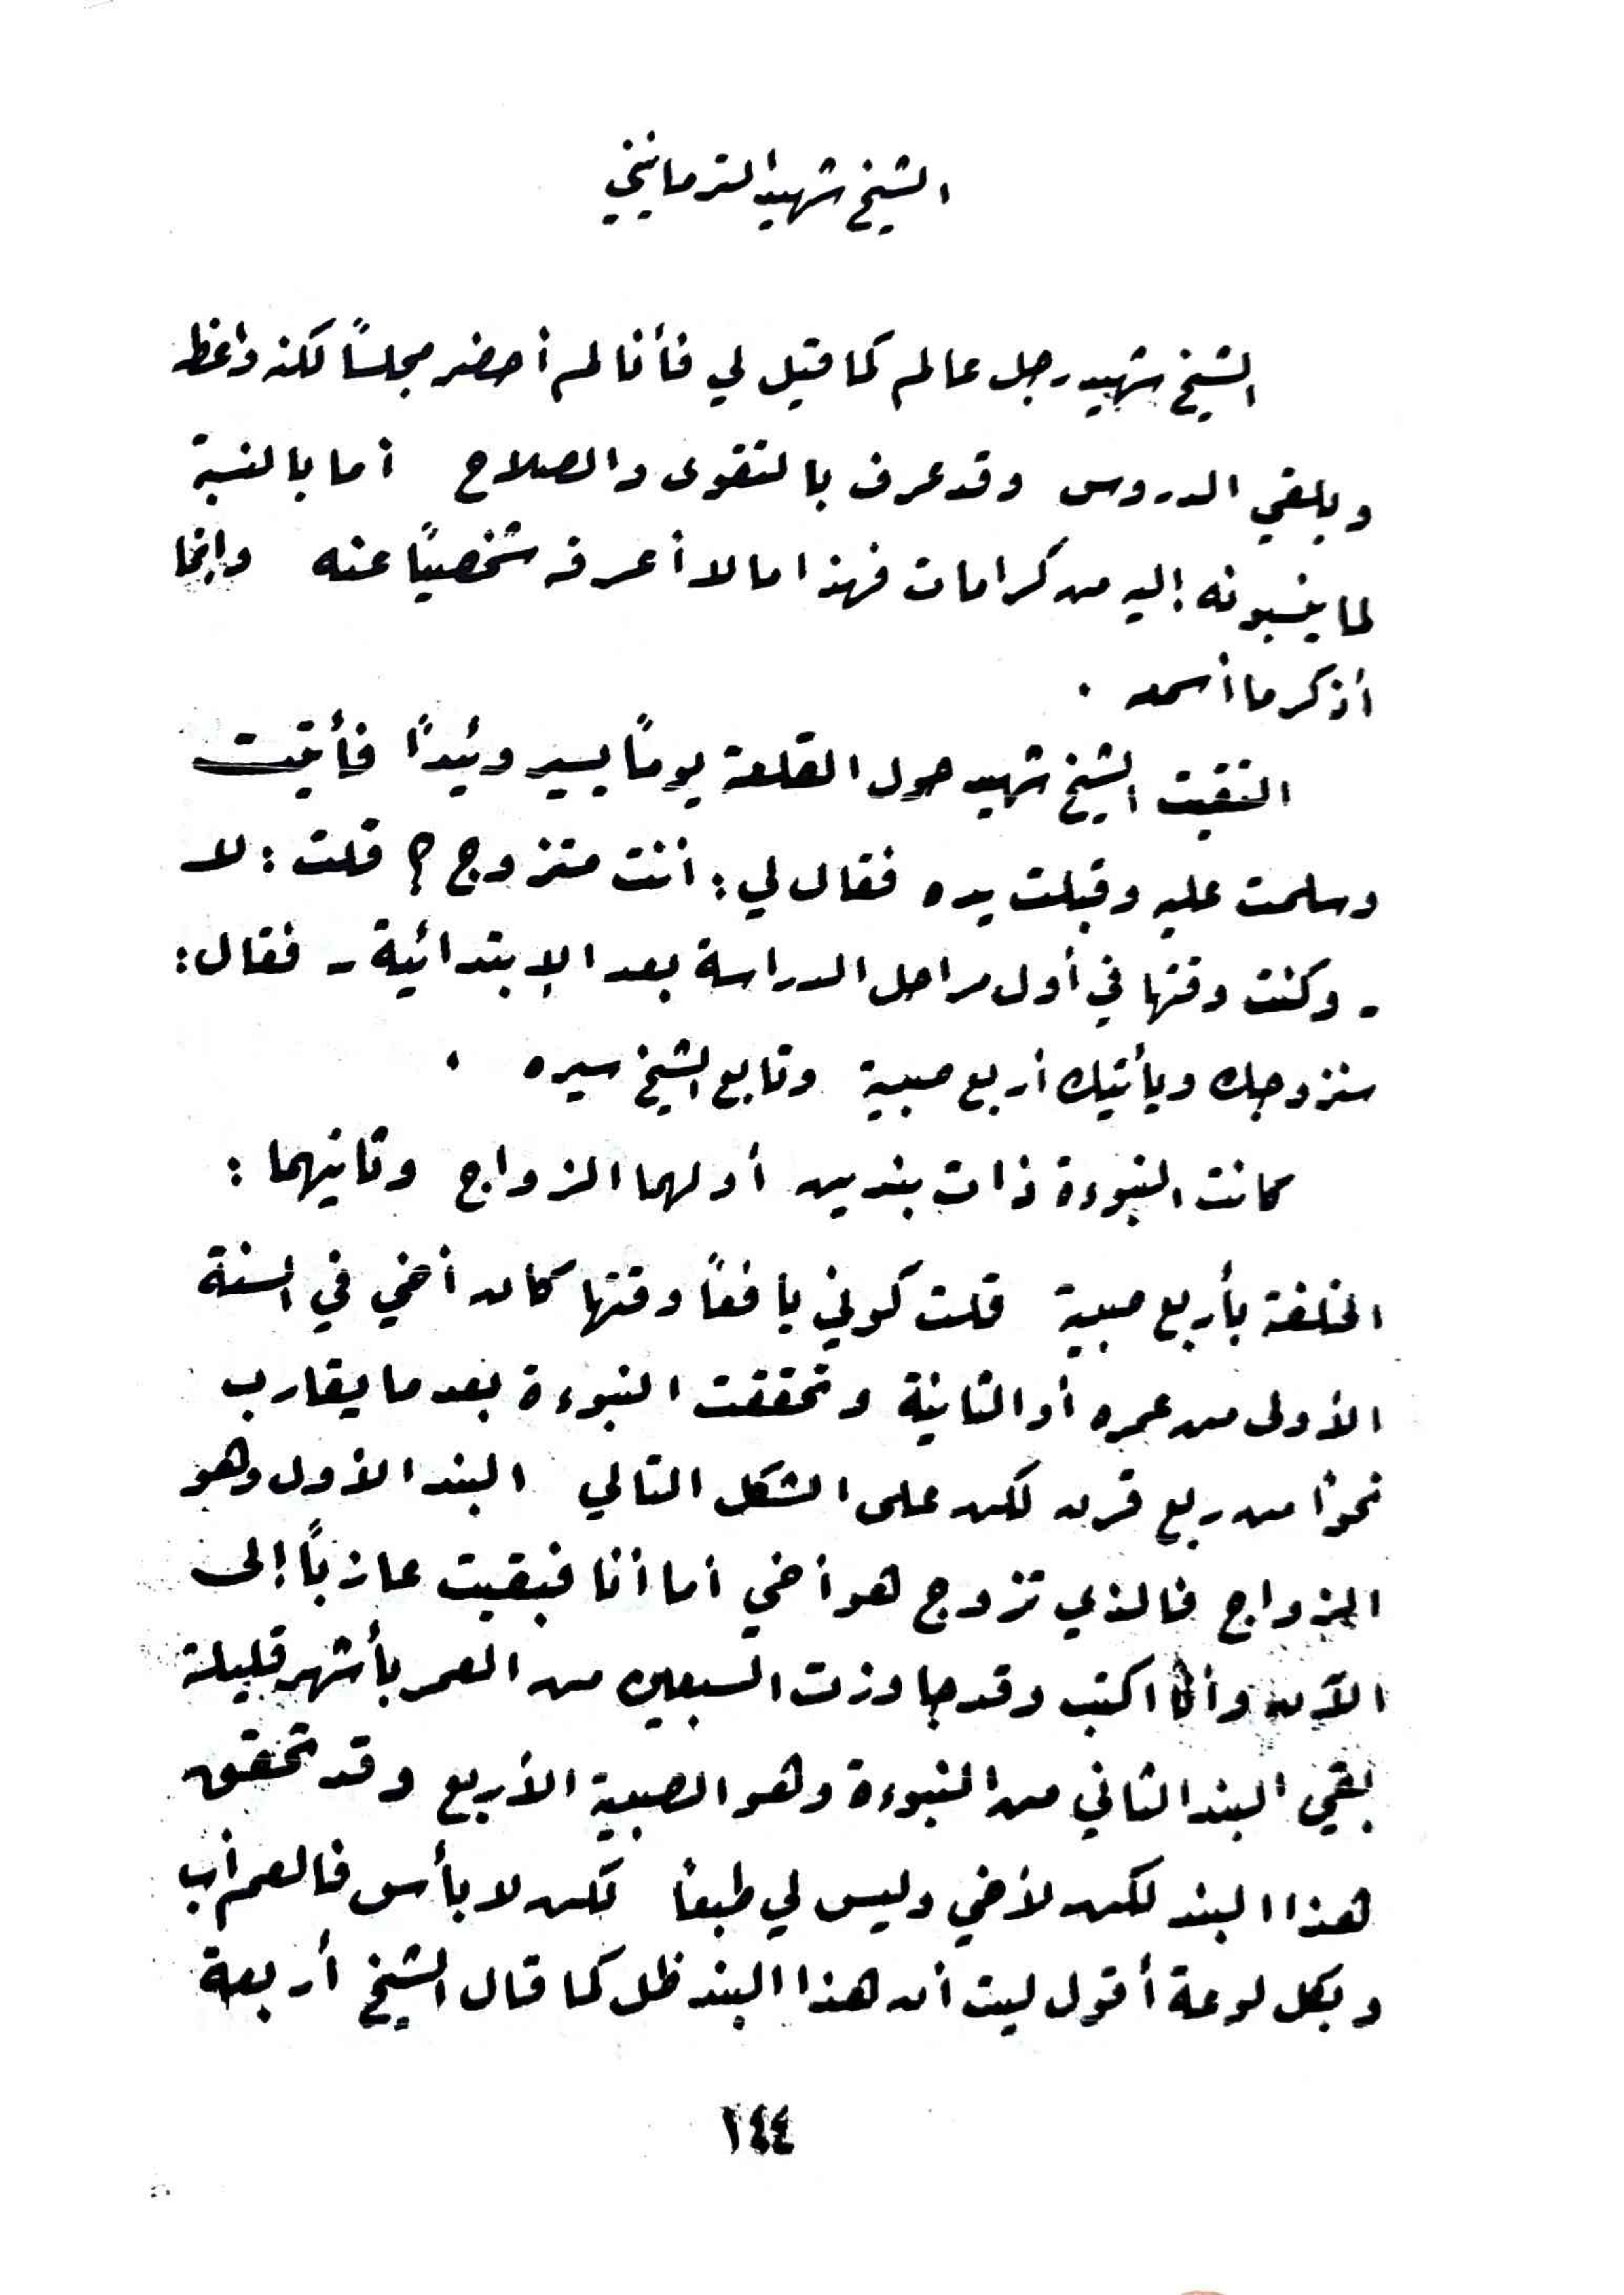 الشيخ شهيد الترمانيني
الشيخ شهيد رجل عالم كما قيل لي فأنا لم أحضر مجلساً لكنه واعظ
ويلقي الدروس وقد عرف بالتقوى والصلاح أما بالنسبة
لما ينسبونه إليه من كرامات فهذا ما لا أعرفه شخصياً عنه وإنما
أذكر ما أسمعه .
التقيت الشيخ شهيد حول القلعة يوماً يسير وئيداً فأتيت
وسلمت عليه وقبلت يده فقال لي : أنت متزوج ؟ قلت : لا
- وكنت وقتها في أول مراحل الدراسة بعد الإبتدائية - فقال :
سنزوجك ويأتيك أربع صبية وتابع الشيخ سيره .
كانت النبوءة ذات بندين أولهما الزواج وثانيهما :
الخلفة بأربع صبية قلت كوني يافعاً وقتها كان أخي في السنة
الأولى من عمره أو الثانية وتحققت النبوءة بعد ما يقارب
نحواً من ربع قرن لكن على الشكل التالي البند الأول وهو
الزواج فالذي تزوج هو أخي أما أنا فبقيت عازباً إلى
الآن وأنا اكتب وقد جاوزت السبعين من العمر بأشهر قليلة
بقي البند الثاني من النبوءة وهو الصبية الأربع وقد تحقق
هذا البند لكن لأخي وليس لي طبعاً لكن لا بأس فالعم أب
وبكل لوعة أقول ليت أن هذا البند ظل كما قال الشيخ أربعة
١٤٤